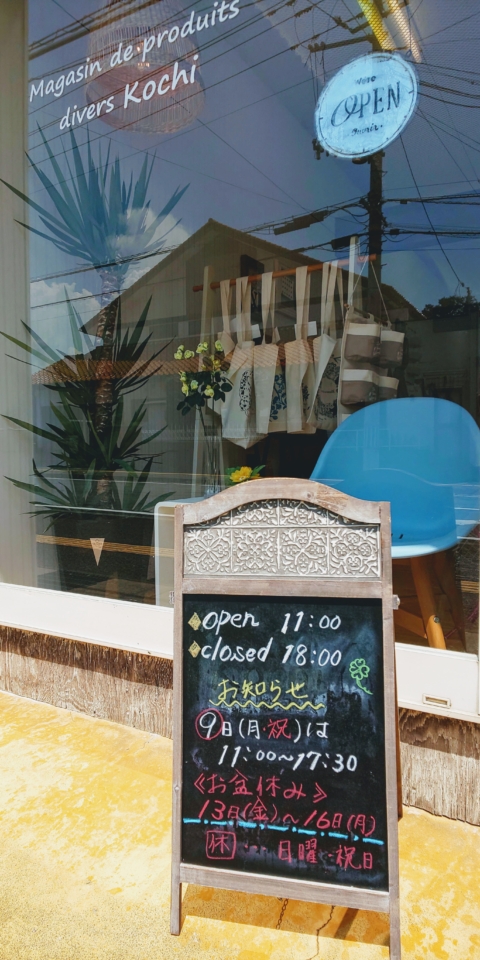 Magasin de produits
divers Kochi
OPEN
open 11:00
closed 18:00
お知らせ
9日(月・祝)は
11:00~17:30
《お盆休み》
13日(金)~16日(月)
休 … 日曜・祝日